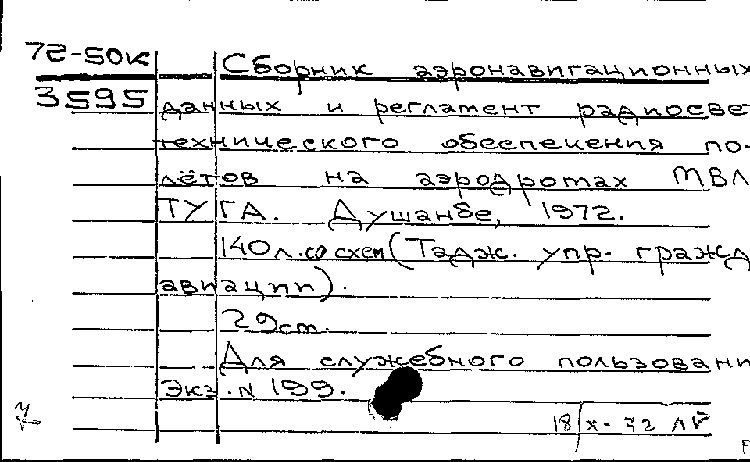 72-50к Сборник аэронавигационных
3595 данных и регламент радиосве
технического обеспечения по-
лётов на аэродромах МВЛ
ТУГА. Душанбе, 1972.
140 л. со схем (Тадж. упр. гражд
авиации).
29 cm.
Для служебного пользовани
Экз. N 199.
18/х-72